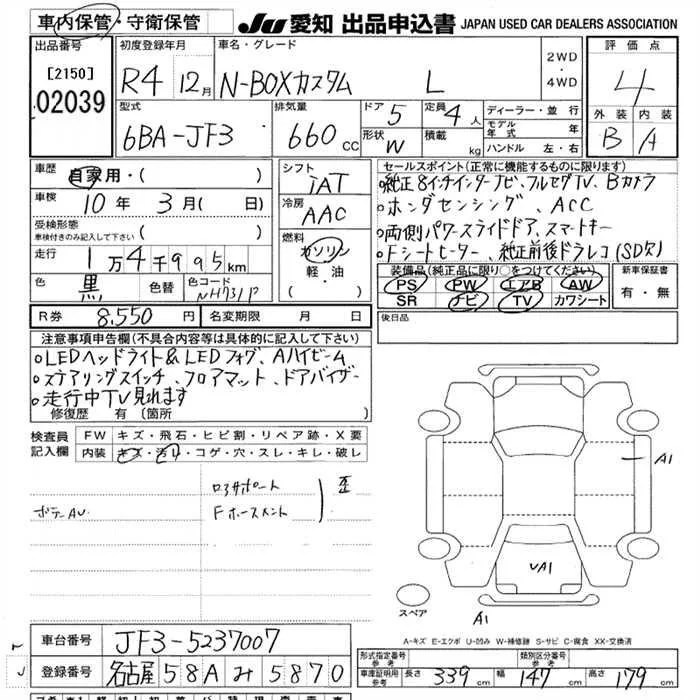 車内保管・守衛保管
JU 愛知 出品申込書 JAPAN USED CAR DEALERS ASSOCIATION
出品番号
[2150]
02039
初度登録年月
R4 12月
車名・グレード
N-BOXカスタム L
2WD
・
4WD
評価点
4
外装 内装
B A
型式
6BA-JF3
排気量
660cc
ドア 5
定員 4人
形状 W
積載 kg
ディーラー・並行
モデル年式 年
ハンドル 左・右
車歴 自家用・( )
車検 10年 3月( 日)
受検形態
車検付きのみ記入して下さい ( )
走行 1万4千995km
色 黒 色替 色コード NH731P
シフト
IAT
冷房
AAC
燃料
ガソリン
軽・油
・( )
セールスポイント(正常に機能するものに限ります)
○純正8インチインターナビ、フルセグTV、Bカメラ
○ホンダセンシング、ACC
○両側パワースライドドア、スマートキー
○Fシートヒーター、純正前後ドラレコ(SD欠)
装備品(純正品に限り○をつけてください)
PS PW エアB AW
SR ナビ TV カワシート
新車保証書
有・無
R券 8,550円 名変期限 月 日
後日品
注意事項申告欄(不具合内容等は具体的に記入して下さい)
○LEDヘッドライト&LEDフォグ、Aハイビーム
○ステアリングスイッチ、フロアマット、ドアバイザー
○走行中TV見れます
修復歴 有 〔箇所 〕
検査員記入欄
FW キズ・飛石・ヒビ割・リペア跡・X要
内装 キズ・汚れ・コゲ・穴・スレ・キレ・破レ
ボデーAU
ロアサポート
Fホースメント
歪
A1
UA1
スペア
A1
A-キズ E-エクボ U-凹み W-補修跡 S-サビ C-腐食 XX-交換済
車台番号 JF3-5237007
登録番号 名古屋 58A み 5870
形式指定番号 参考
類別区分番号 参考
車庫証明用参考 長さ 339cm 幅 147cm 高さ 179cm